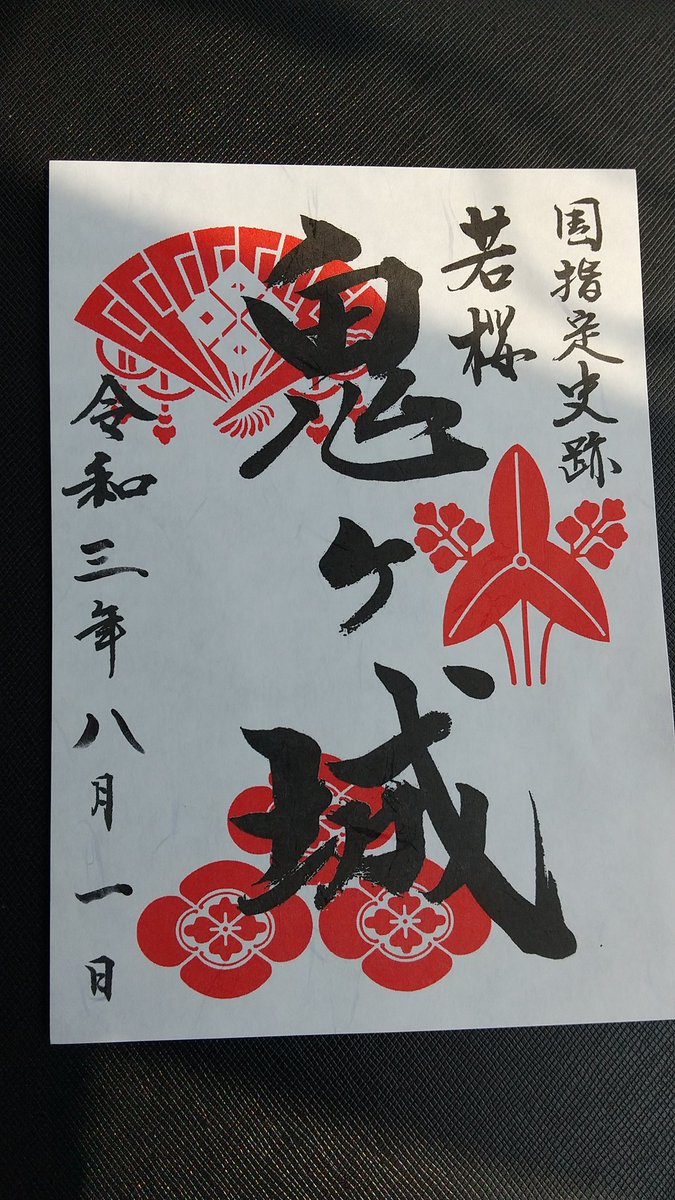 国指定史跡
若桜
鬼ヶ城
令和三年八月一日